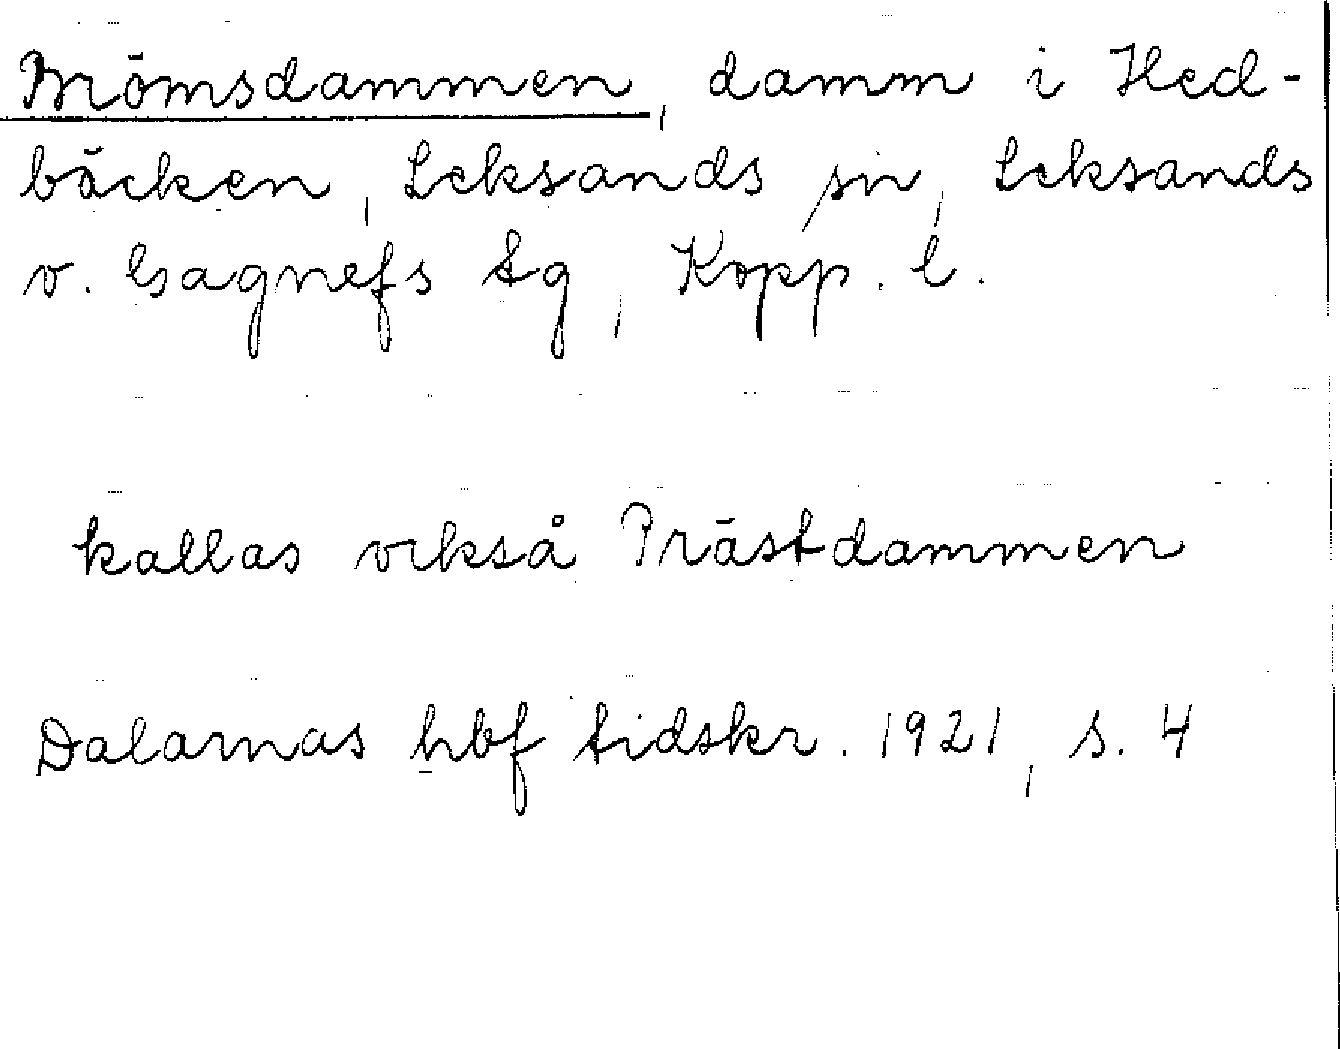 Brömsdammen, damm i Hed-
bäcken, Leksands sn, Leksands
o. Gagnefs tg, Kopp. l.
kallas också Prästdammen
Dalarnas hbf tidskr. 1921, s. 4